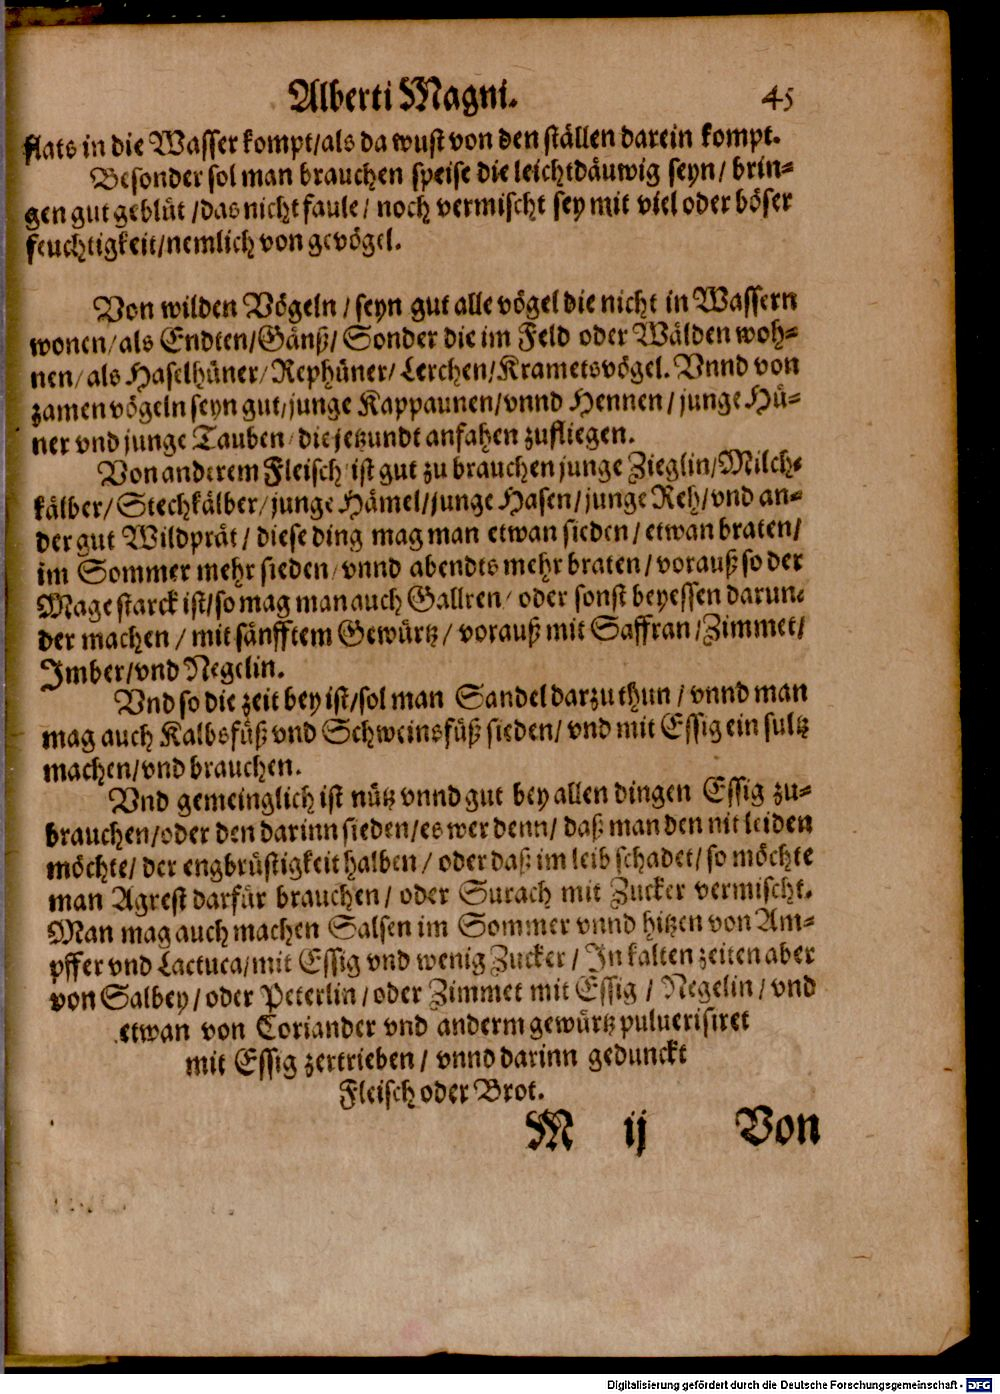 Alberti Magni. 45
flats in die Wasser kompt/als da wust von den ställen darein kompt.
Besonder sol man brauchen speise die leichtdäuwig seyn/ brin-
gen gut geblüt/das nicht faule/ noch vermischt sey mit viel oder böser
feuchtigkeit/nemlich von gevögel.
Von wilden Vögeln/seyn gut alle vögel die nicht in Wassern
wonen/als Endten/Gänß/Sonder die im Feld oder Wälden woh-
nen/als Haselhüner/Rephüner/Lerchen/Krametsvögel. Vnnd von
zamen vögeln seyn gut/junge Kappaunen/vnnd Hennen/junge Hü-
ner vnd junge Tauben/die jetzundt anfahen zufliegen.
Von anderem Fleisch ist gut zu brauchen junge Zieglin/Milch-
kälber/Stechkälber/junge Hämel/junge Hasen/junge Reh/vnd an-
der gut Wildprät/diese ding mag man etwan sieden/etwan braten/
im Sommer mehr sieden/vnnd abendts mehr braten/vorauß so der
Mage starck ist/so mag man auch Gallren/oder sonst beyessen darun-
der machen/mit sänfftem Gewürtz/vorauß mit Saffran/Zimmet/
Imber/vnd Negelin.
Vnd so die zeit bey ist/sol man Sandel darzu thun/vnnd man
mag auch Kalbsfüß vnd Schweinsfüß sieden/vnd mit Essig ein sultz
machen/vnd brauchen.
Vnd gemeinglich ist nütz vnnd gut bey allen dingen Essig zu-
brauchen/oder den darinn sieden/es wer denn/daß man den nit leiden
möchte/der engbrüstigkeit halben/oder daß im leib schadet/so möchte
man Agrest darfür brauchen/oder Surach mit Zucker vermischt.
Man mag auch machen Salsen im Sommer vnnd hitzen von Am-
pffer vnd Lactuca/mit Essig vnd wenig Zucker/In kalten zeiten aber
von Salbey/oder Peterlin/oder Zimmet mit Essig/Negelin/vnd
etwan von Coriander vnd anderm gewürtz puluerisiret
mit Essig zertrieben/vnnd darinn gedunckt
Fleisch oder Brot.
M ij Von
Digitalisierung gefördert durch die Deutsche Forschungsgemeinschaft - DFG